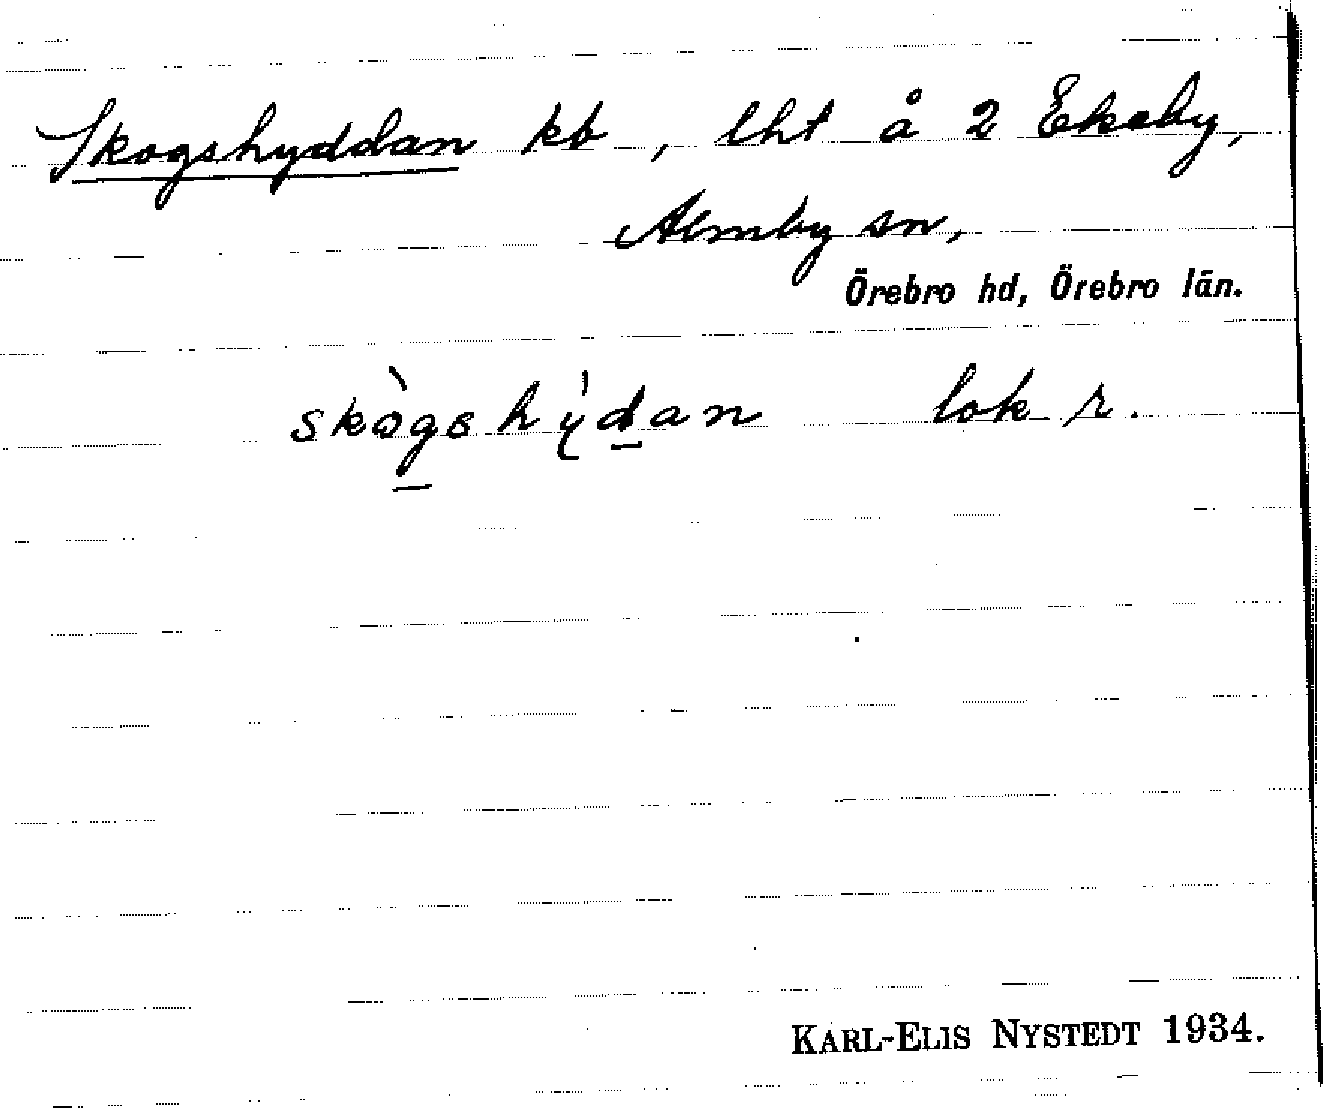 Skogshyddan kb, lht å 2 Ekeby,
Almby sn,
Örebro hd, Örebro län.
skògshýdan lok r.
KARL-ELIS NYSTEDT 1934.